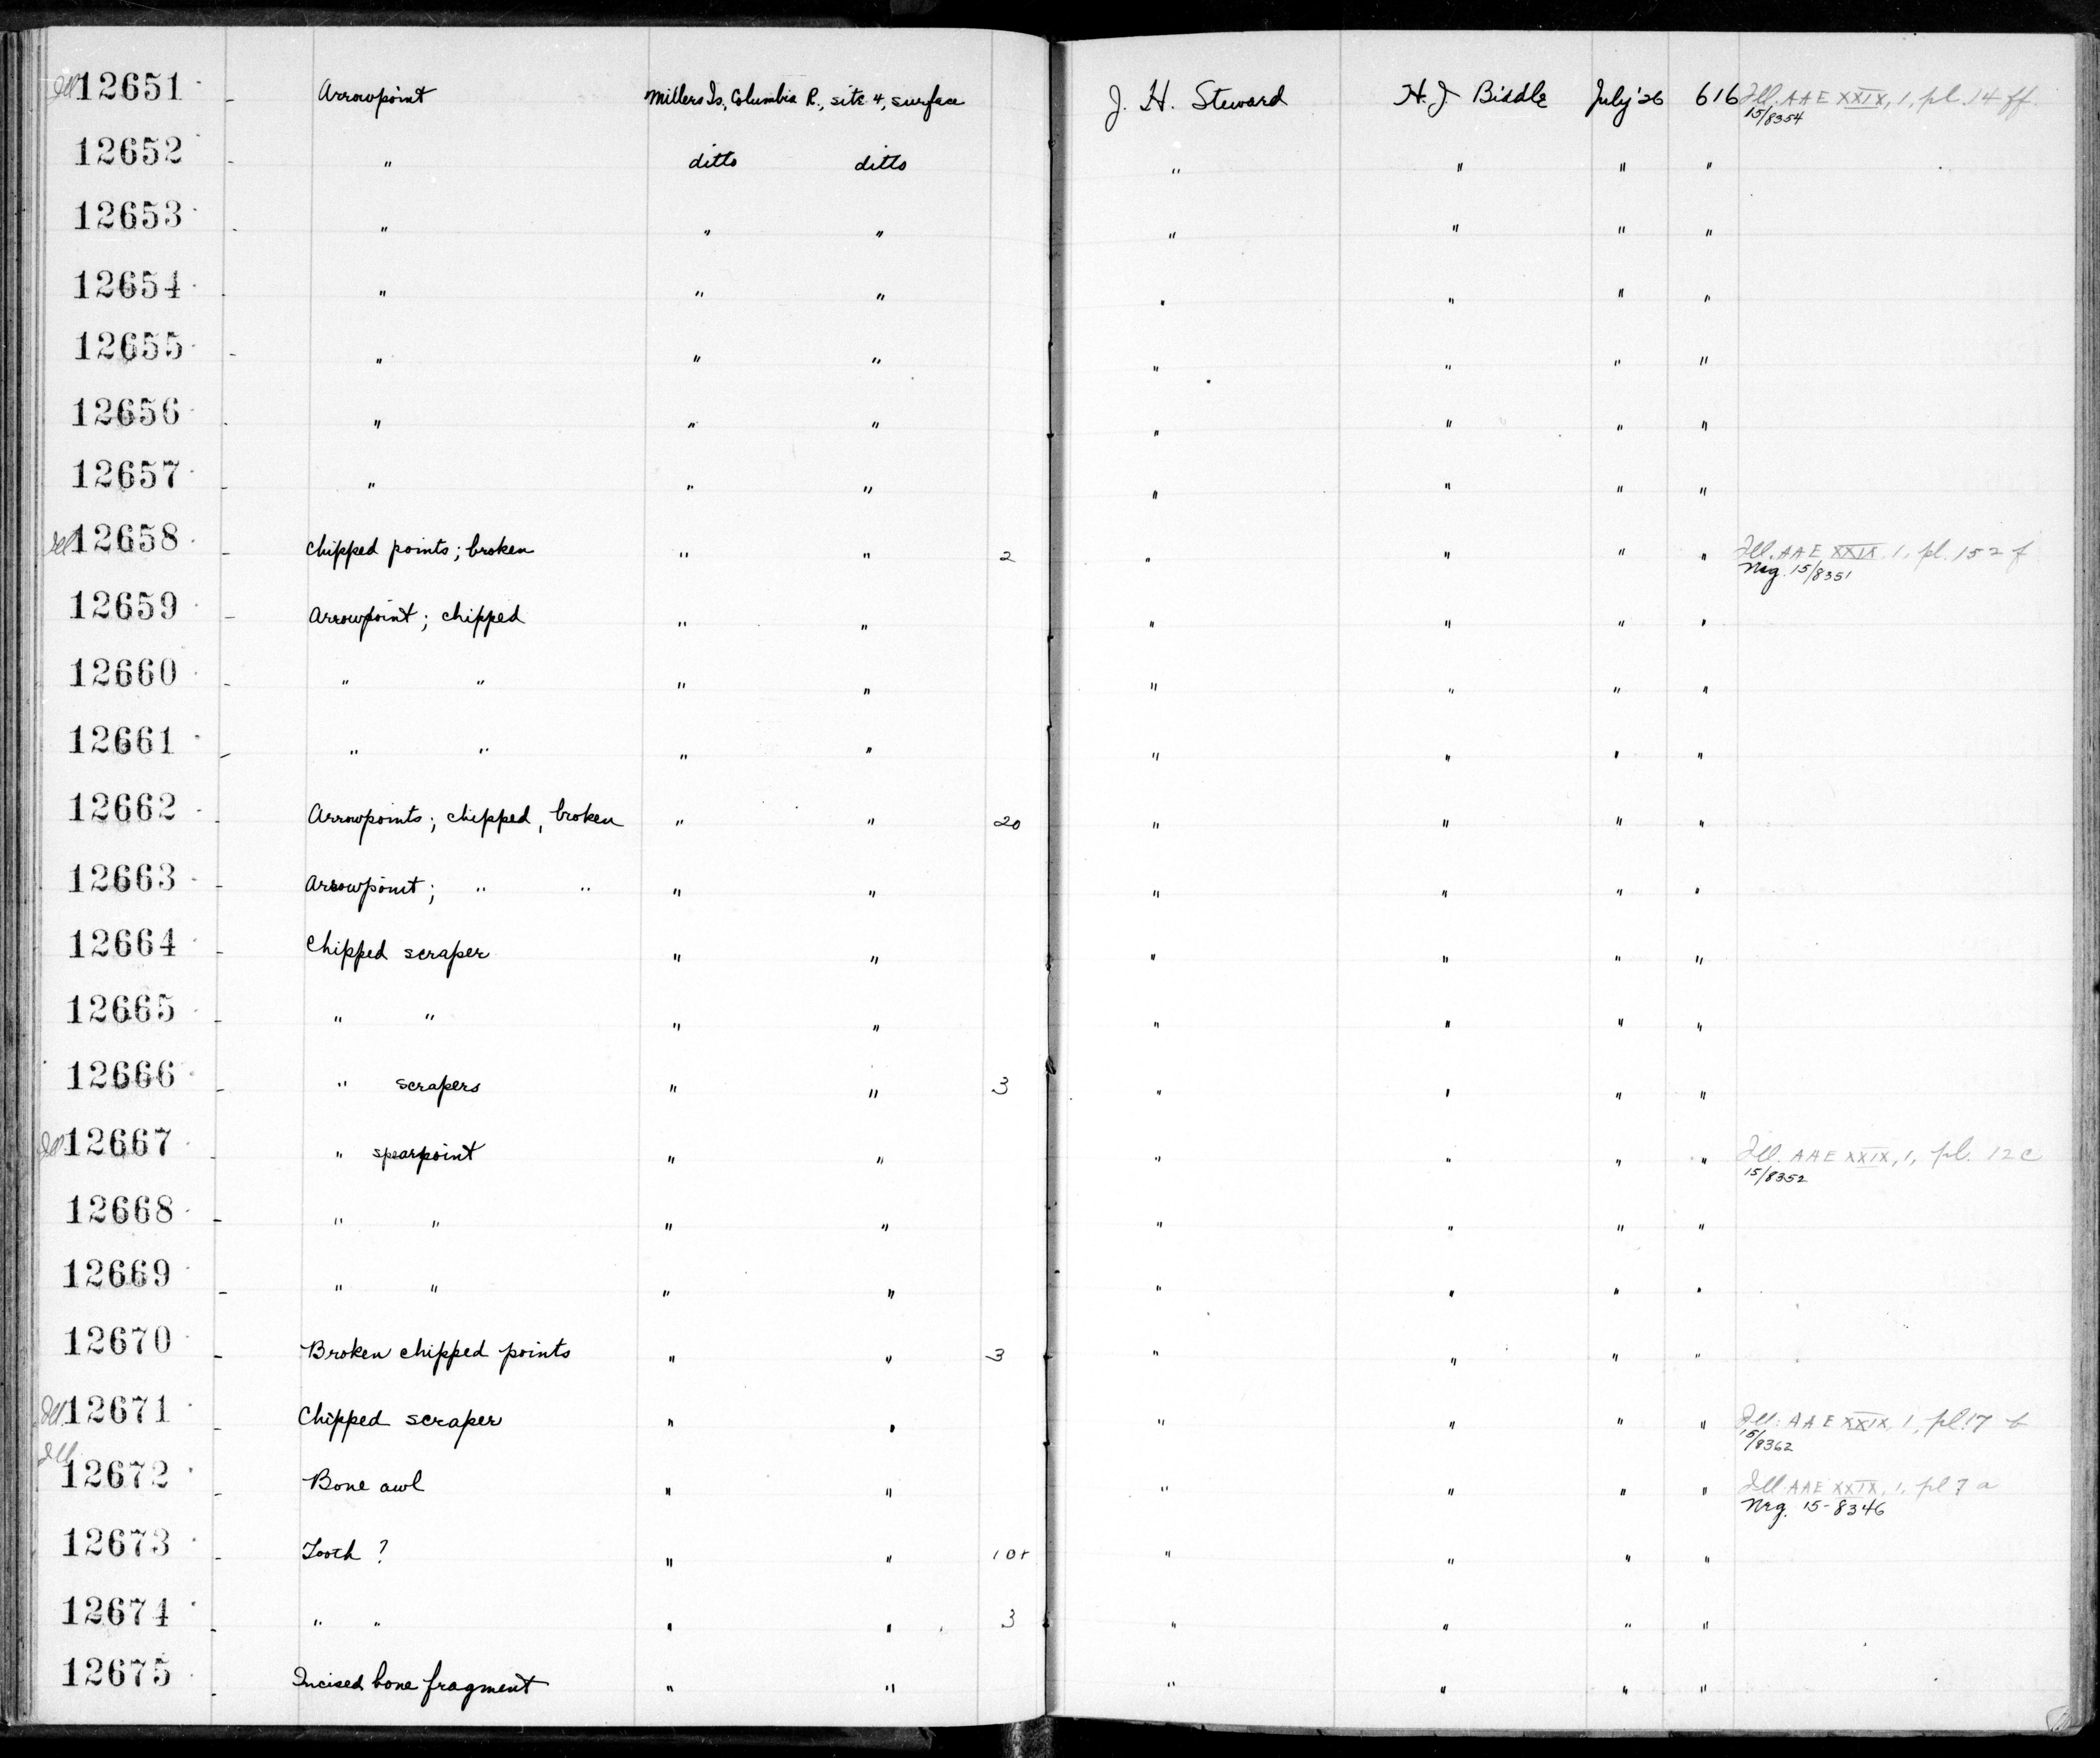 Ill 12651 - Arrowpoint Millers Is, Columbia R., site 4, surface J. H. Steward H. J. Biddle July '26 616 Ill. AAE XXIX, 1, pl. 14 ff.
15/8354
12652 - " ditto ditto " " " "
12653 - " " " " " " "
12654 - " " " " " " "
12655 - " " " " " " "
12656 - " " " " " " "
12657 - " " " " " " "
Ill 12658 - Chipped points; broken " " 2 " " " " Ill. AAE XXIX, 1, pl. 15 2 f
Neg. 15/8351
12659 - Arrowpoint; chipped " " " " " "
12660 - " " " " " " " "
12661 - " " " " " " " "
12662 - Arrowpoints; chipped, broken " " 20 " " " "
12663 - Arrowpoint; " " " " " " " "
12664 - Chipped scraper " " " " " "
12665 - " " " " " " " "
12666 - " scrapers " " 3 " " " "
Ill 12667 - " spearpoint " " " " " " Ill. AAE XXIX, 1, pl. 12 c
15/8352
12668 - " " " " " " " "
12669 - " " " " " " " "
12670 - Broken chipped points " " 3 " " " "
Ill. 12671 - Chipped scraper " " " " " " Ill. AAE XXIX, 1, pl. 17 b
15/8362
Ill 12672 - Bone awl " " " " " " Ill. AAE XXIX, 1, pl 7 a
Neg. 15-8346
12673 - Tooth ? " " " " " "
12674 - " " " " 3 " " " "
12675 - Incised bone fragment " " " " " "